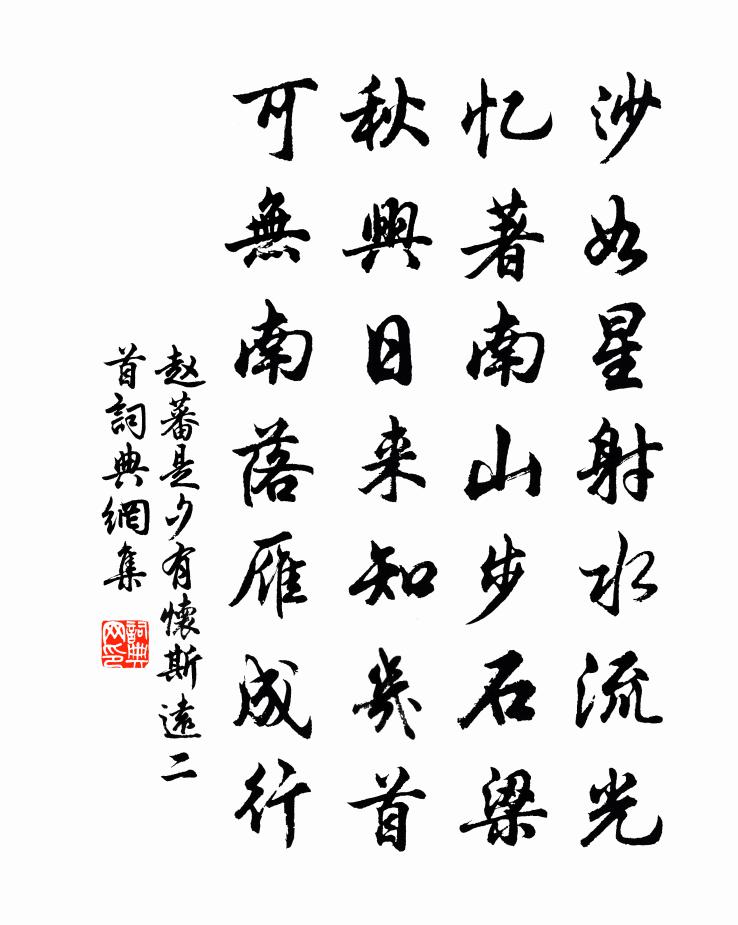 沙如星射水流光
忆著南山步石梁
秋興日来知幾首
可無南落雁成行
赵蕃是夕有懷斯遠二
首詞典網集
詞典
网印